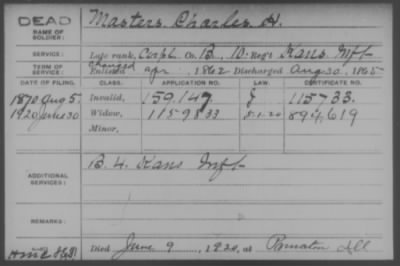 DEAD
NAME OF SOLDIER: Masters, Charles H.
SERVICE: Late rank, Corpl Co. B, 10 Reg't Kans Inft
TERM OF SERVICE: Changed Enlisted Apr , 1862 Discharged Aug 30, 1865
DATE OF FILING. CLASS. APPLICATION NO. LAW. CERTIFICATE NO.
1870 Aug 5, Invalid, 159.147 J 115733
1920 June 30 Widow, 1159833 5-1-20 894,619
Minor,
ADDITIONAL SERVICES: B. 4. Kans Inft
REMARKS:
Died June 9, 1920, at Princeton Ill